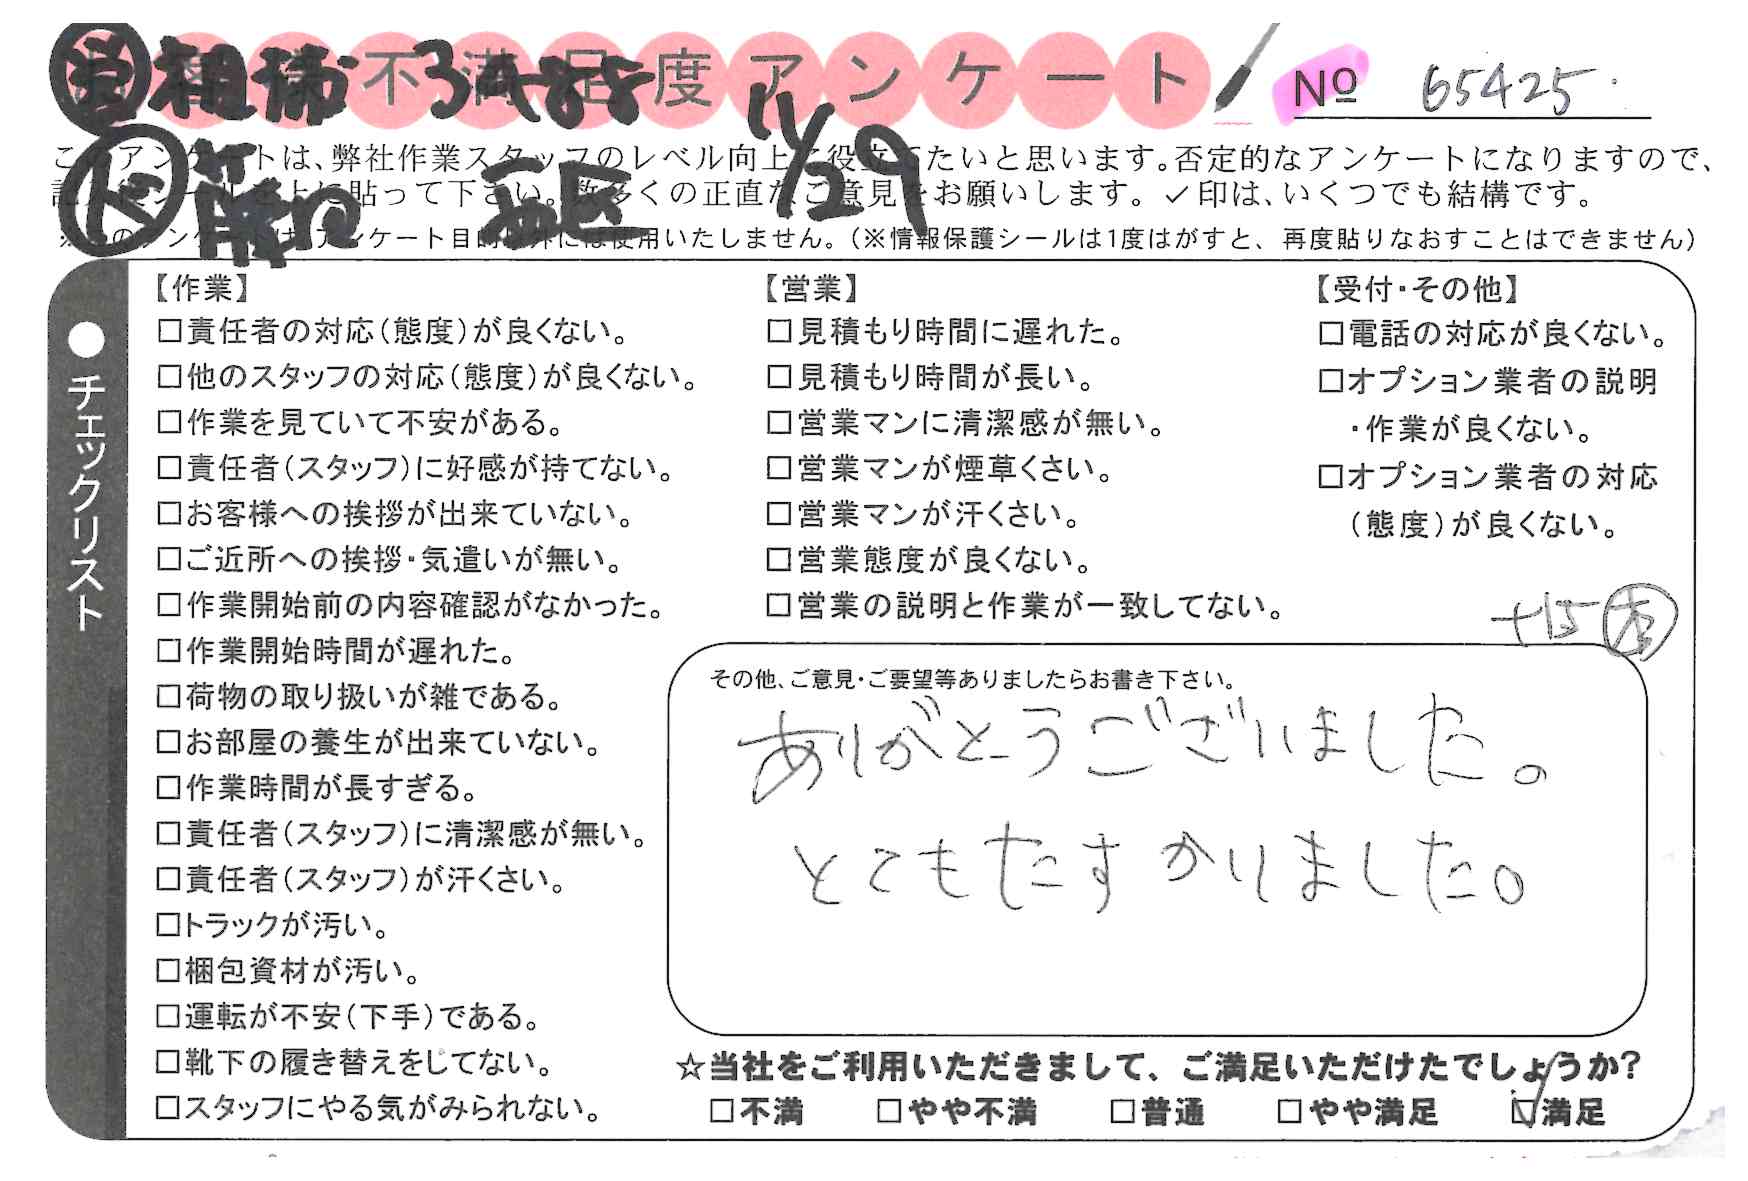 お客様不満足度アンケート
No 65425
11/29
このアンケートは、弊社作業スタッフのレベル向上に役立てたいと思います。否定的なアンケートになりますので、
貼って下さい。数多くの正直なご意見をお願いします。✓印は、いくつでも結構です。
※このアンケートは、アンケート目的以外には使用いたしません。（※情報保護シールは1度はがすと、再度貼りなおすことはできません）
●チェックリスト
【作業】
□責任者の対応（態度）が良くない。
□他のスタッフの対応（態度）が良くない。
□作業を見ていて不安がある。
□責任者（スタッフ）に好感が持てない。
□お客様への挨拶が出来ていない。
□ご近所への挨拶・気遣いが無い。
□作業開始前の内容確認がなかった。
□作業開始時間が遅れた。
□荷物の取り扱いが雑である。
□お部屋の養生が出来ていない。
□作業時間が長すぎる。
□責任者（スタッフ）に清潔感が無い。
□責任者（スタッフ）が汗くさい。
□トラックが汚い。
□梱包資材が汚い。
□運転が不安（下手）である。
□靴下の履き替えをしてない。
□スタッフにやる気がみられない。
【営業】
□見積もり時間に遅れた。
□見積もり時間が長い。
□営業マンに清潔感が無い。
□営業マンが煙草くさい。
□営業マンが汗くさい。
□営業態度が良くない。
□営業の説明と作業が一致してない。
【受付・その他】
□電話の対応が良くない。
□オプション業者の説明
・作業が良くない。
□オプション業者の対応
（態度）が良くない。
+15
その他、ご意見・ご要望等ありましたらお書き下さい。
ありがとうございました。
とてもたすかりました。
☆当社をご利用いただきまして、ご満足いただけたでしょうか?
□不満 □やや不満 □普通 □やや満足 ☑満足